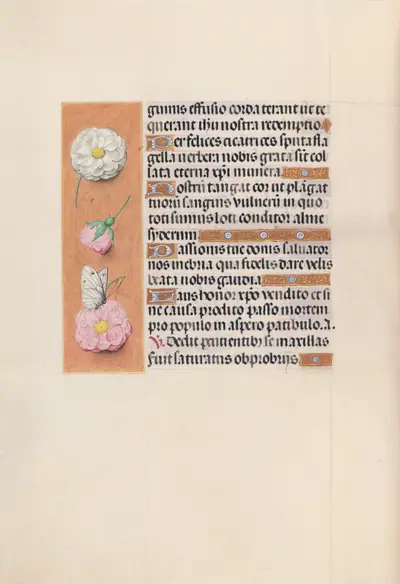 guinis effusio corda terant ut te
querant ihu nostra redemptio.
Per felices cicatrices sputa fla
gella verbera nobis grata sint col
lata eterna xpi munera.
Nostrū tangat cor ut plāgat
tuorū sanguis vulnerū in quo
toti sumus loti conditor alme
syderum
Passionis tue donis saluator
nos inebria qua fidelis dare velis
beata nobis gaudia.
Laus honor xpo vendito et si
ne causa prodito passo mortem
pro populo in aspero patibulo. A.
V. Dedit percutientibꝰ se maxillas
Fuit saturatus obprobrijs